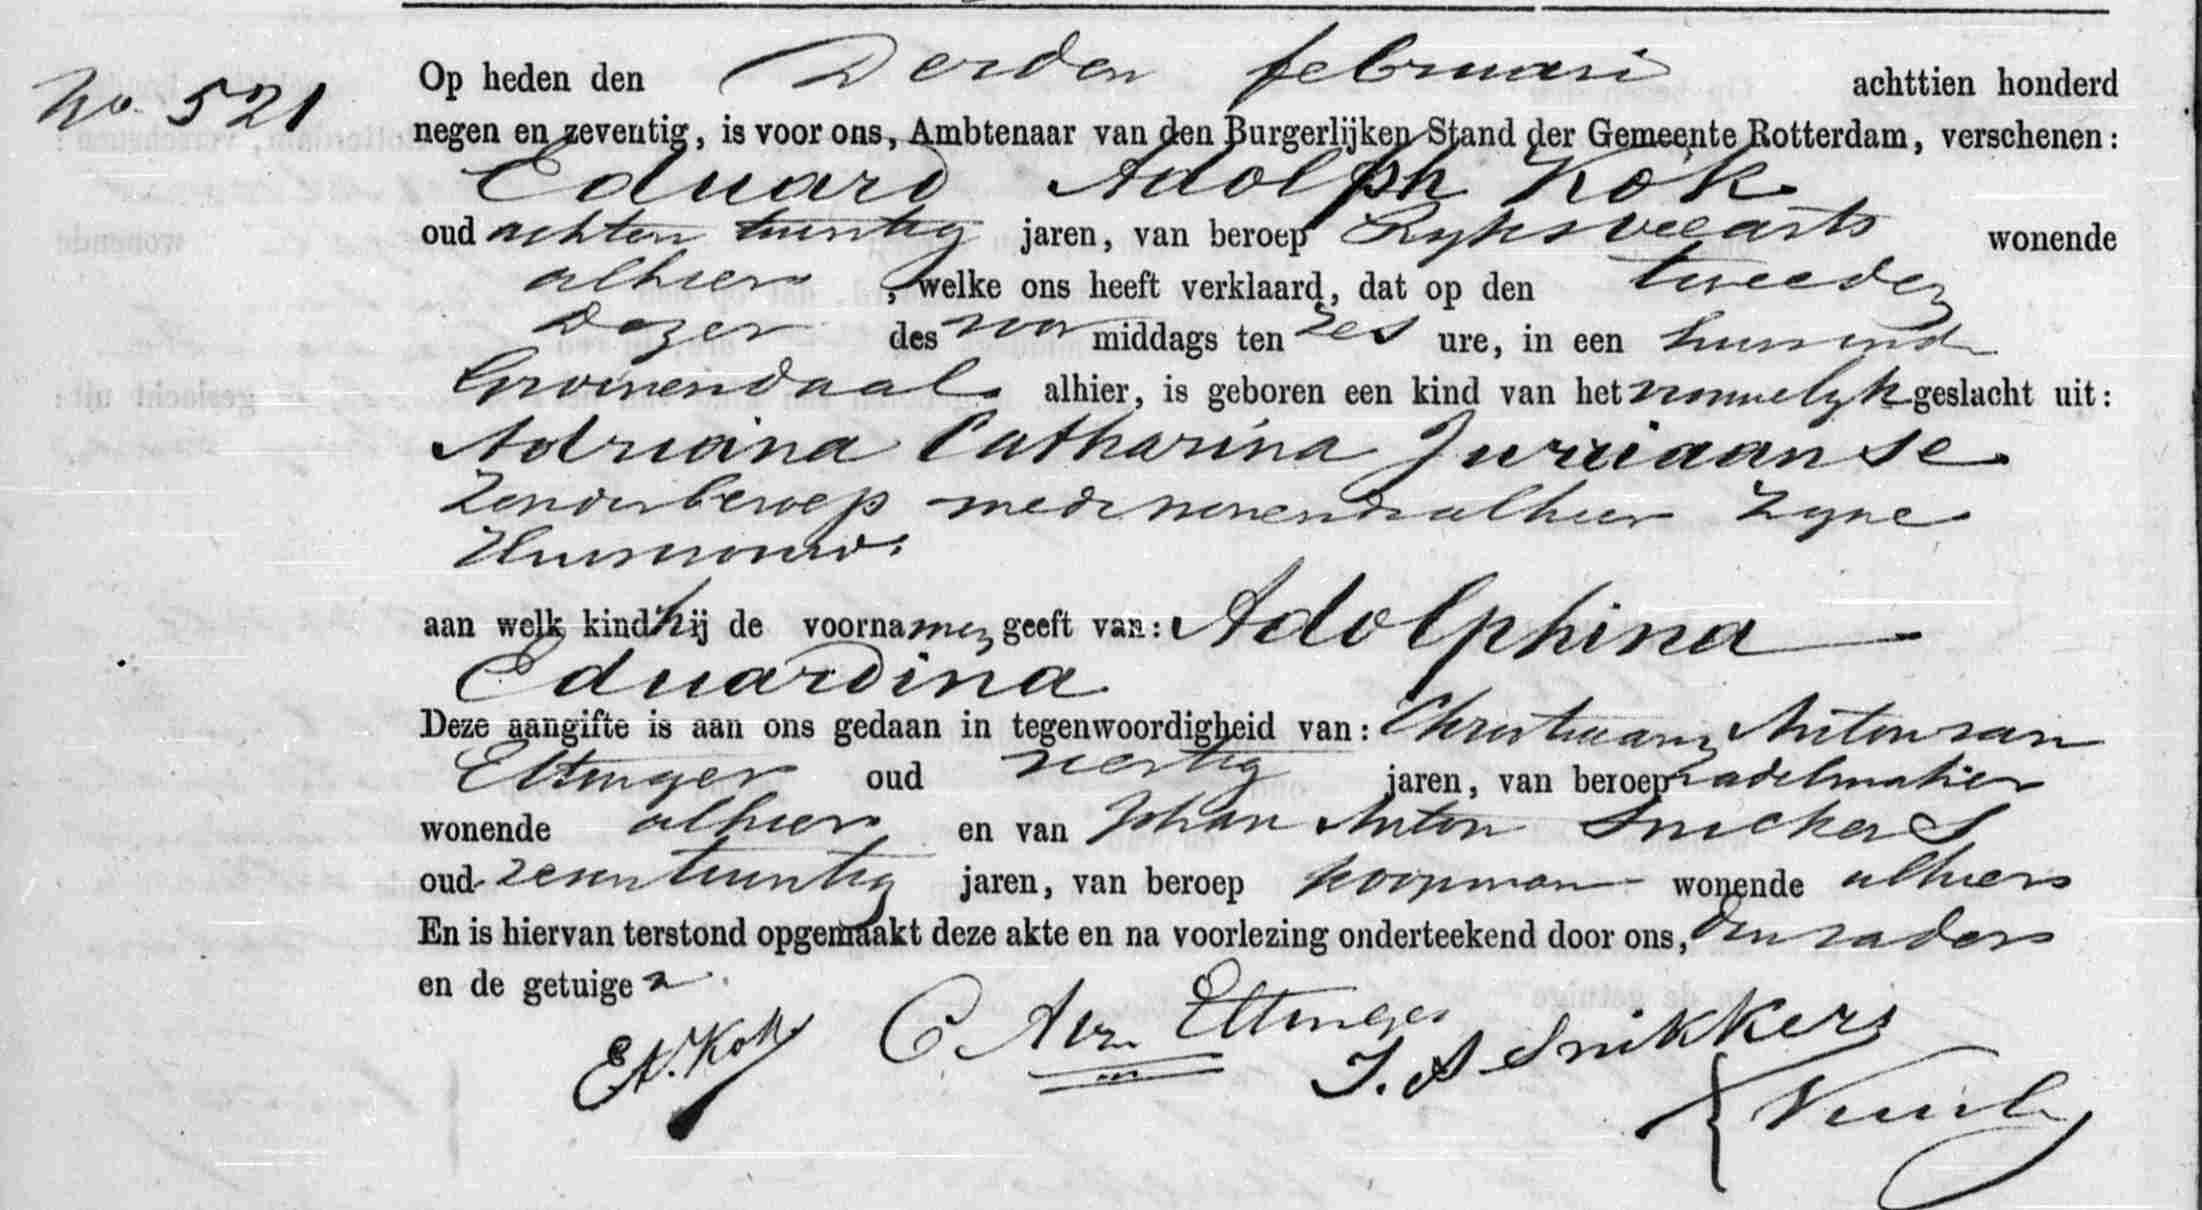 No. 521
Op heden den Derden februari achttien honderd
negen en zeventig, is voor ons, Ambtenaar van den Burgerlijken Stand der Gemeente Rotterdam, verschenen:
Eduard Adolph Kok
oud achten twintig jaren, van beroep Ryksveearts wonende
alhier, welke ons heeft verklaard, dat op den tweeden
dezer des voor middags ten zes ure, in een huis ind
Groenendaal alhier, is geboren een kind van het vrouwelyk geslacht uit:
Adriana Catharina Jurriaanse
Zonder beroep mede wonende alhier Zyne
Huisvrouw.
aan welk kind hij de voornamen geeft van: Adolphina
Eduardina
Deze aangifte is aan ons gedaan in tegenwoordigheid van: Christiaan Anton van
Eltinger oud veertig jaren, van beroep zadelmaker
wonende alhier en van Johan Anton Snickers
oud zevenentwintig jaren, van beroep koopman wonende alhier
En is hiervan terstond opgemaakt deze akte en na voorlezing onderteekend door ons, den vader
en de getuigen
E A. Kok C A vn Eltinger
J. A Snikkers